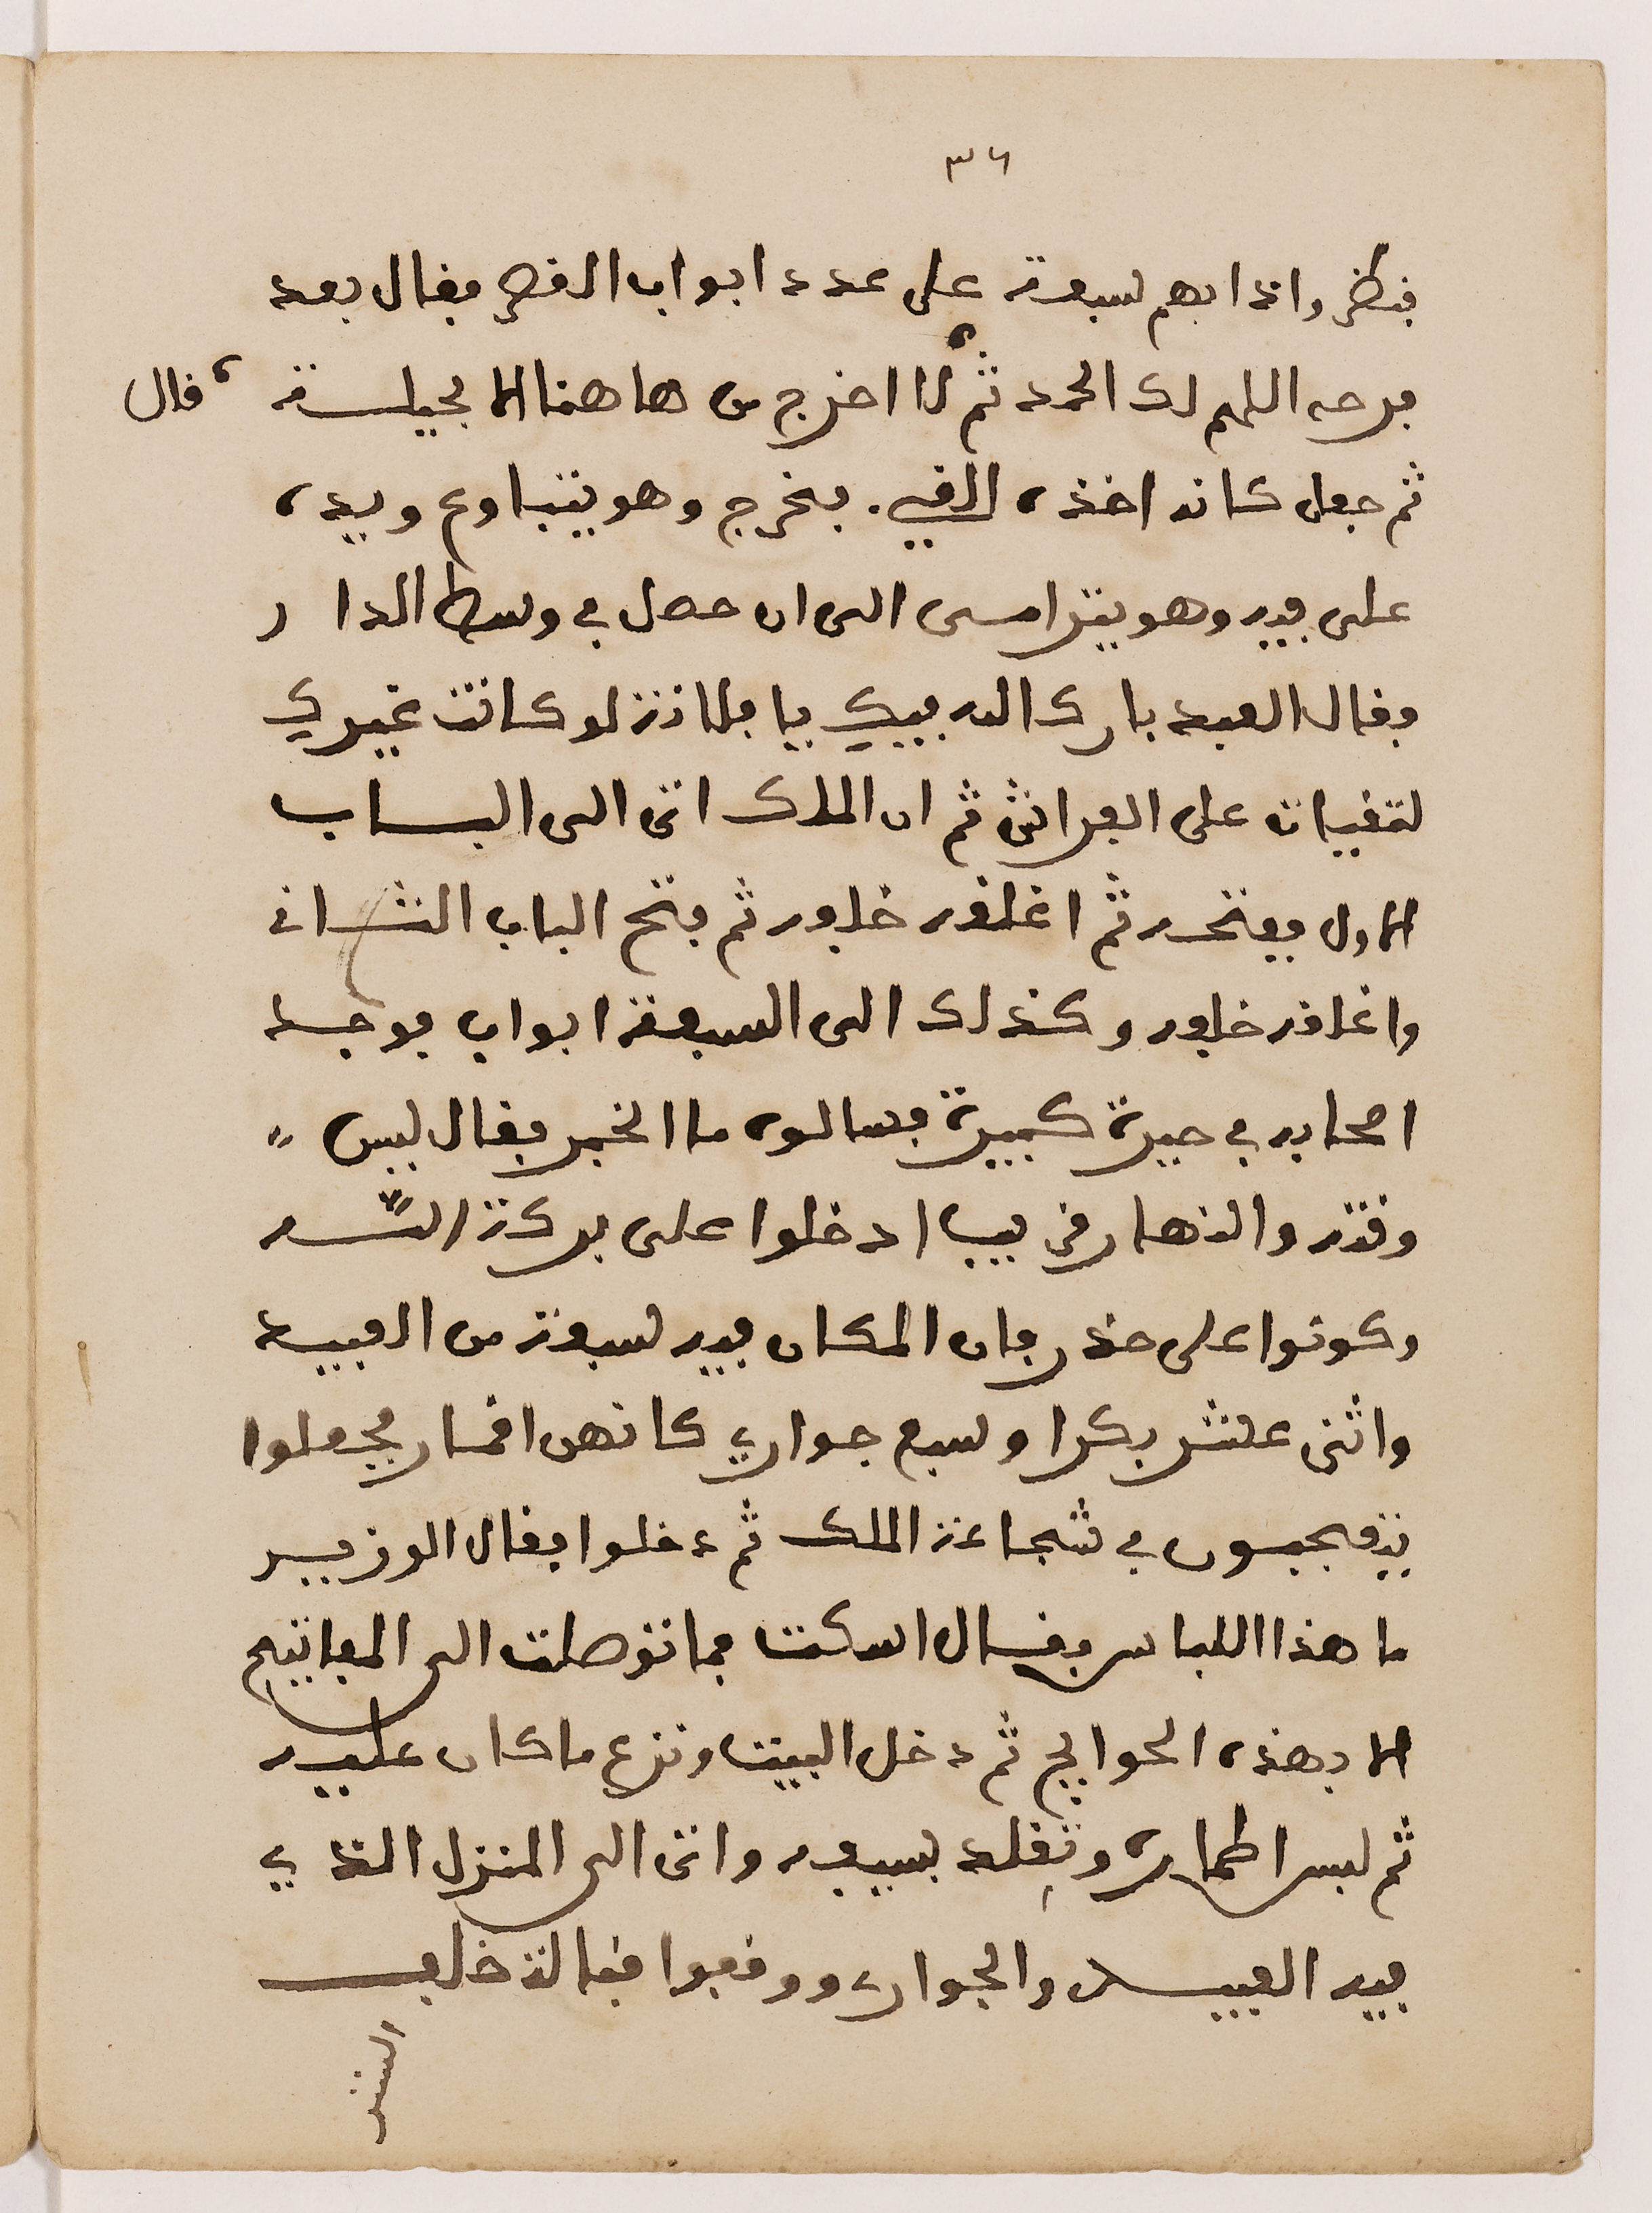 ٣٦
فنظر واذا بهم سبعة على عدد ابواب القصر فقال بعد
فرحه اللهم لك الحمد ثم لا اخرج من هاهنا الا بحيلة قال
ثم جعل كانه اخذه القي. فخرج وهو يتباوع ويده
على فيه وهو يترامى الى ان حصل في وسط الدار
فقال العبد بارك الله فيك يا فلانة لو كانت غيرك
لتقيات على الفراش ثم ان الملك اتى الى البـاب
الاول ففتحه ثم اغلقه خلفه ثم فتح الباب الثـانى
واغلقه خلفه وكذلك الى السبعة ابواب فوجد
اصحابه في حيرة كبيرة فسالوه ما الخبر فقال ليس
وقته والنهار قريب ادخلوا على بركة الله
وكونوا على حذر فان المكان فيه سبعة من العبيد
واثنى عشر بكرا وسبع جواري كانهن اقمار فجعلوا
يتعجبون في شجاعة الملك ثم دخلوا فقال الوزير
ما هذا اللباس فقال اسكت فما توصلت الى المفاتيح
الا بهذه الحوايج ثم دخل البيت ونزع ما كان عليه
ثم لبس اطماره وتقلد بسيفه واتى الى المنزل الذي
فيه العبيد والجوار ووقفوا فقالة خلف
الستر